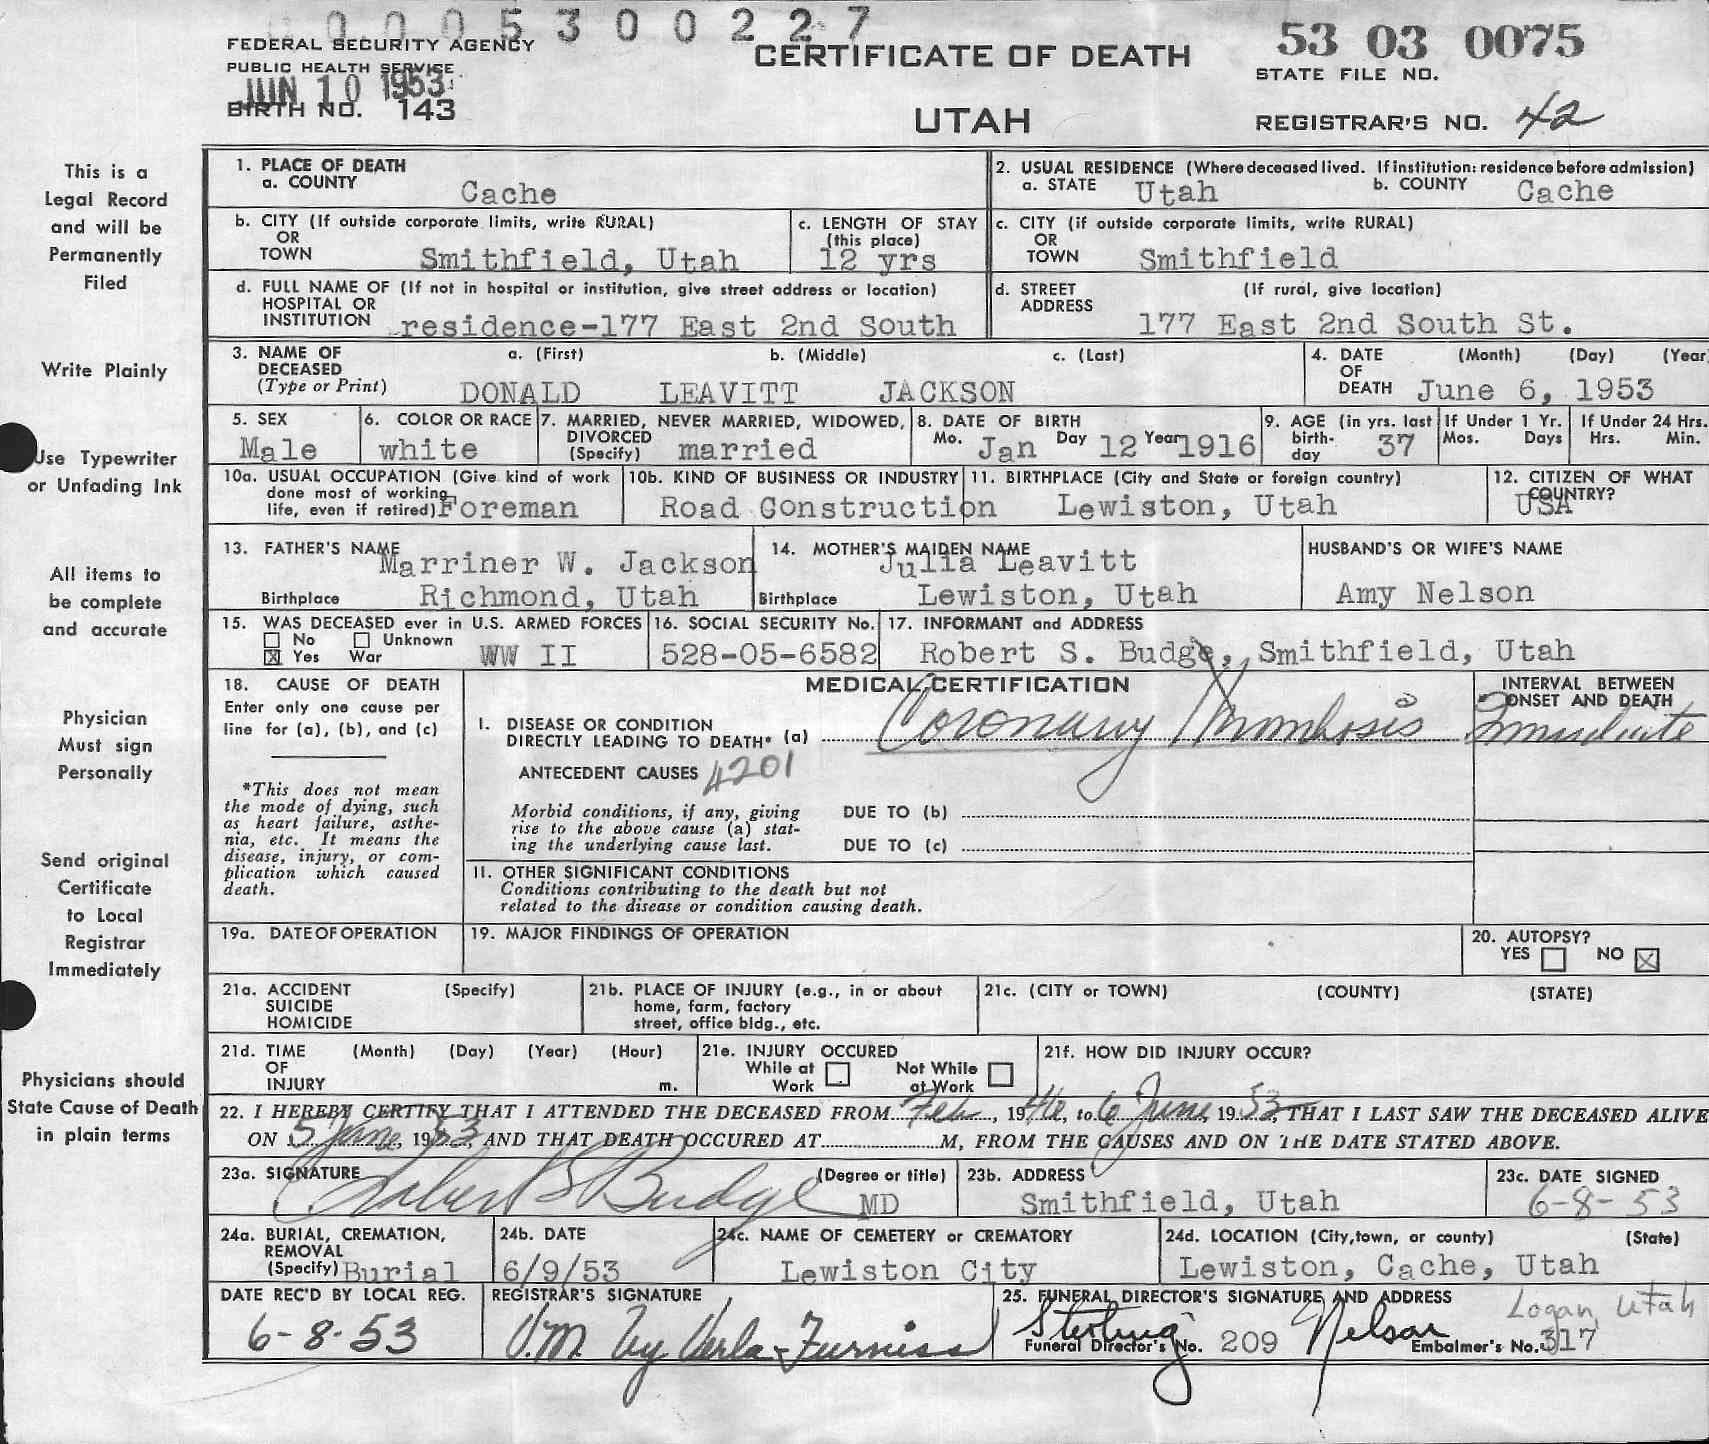 0005300227
FEDERAL SECURITY AGENCY
PUBLIC HEALTH SERVICE
JUN 10 1953
BIRTH NO. 143
CERTIFICATE OF DEATH
UTAH
53 03 0075
STATE FILE NO.
REGISTRAR'S NO. 42
This is a
Legal Record
and will be
Permanently
Filed
Write Plainly
Use Typewriter
or Unfading Ink
All items to
be complete
and accurate
Physician
Must sign
Personally
Send original
Certificate
to Local
Registrar
Immediately
Physicians should
State Cause of Death
in plain terms
1. PLACE OF DEATH
a. COUNTY Cache
2. USUAL RESIDENCE (Where deceased lived. If institution: residence before admission)
a. STATE Utah b. COUNTY Cache
b. CITY (If outside corporate limits, write RURAL)
OR
TOWN Smithfield, Utah
c. LENGTH OF STAY
(this place)
12 yrs
c. CITY (if outside corporate limits, write RURAL)
OR
TOWN Smithfield
d. FULL NAME OF (If not in hospital or institution, give street address or location)
HOSPITAL OR
INSTITUTION residence-177 East 2nd South
d. STREET (If rural, give location)
ADDRESS
177 East 2nd South St.
3. NAME OF a. (First) b. (Middle) c. (Last)
DECEASED
(Type or Print) DONALD LEAVITT JACKSON
4. DATE (Month) (Day) (Year
OF
DEATH June 6, 1953
5. SEX
Male
6. COLOR OR RACE
white
7. MARRIED, NEVER MARRIED, WIDOWED,
DIVORCED
(Specify) married
8. DATE OF BIRTH
Mo. Jan Day 12 Year 1916
9. AGE (in yrs. last
birth-
day 37
If Under 1 Yr.
Mos. Days
If Under 24 Hrs.
Hrs. Min.
10a. USUAL OCCUPATION (Give kind of work
done most of working
life, even if retired) Foreman
10b. KIND OF BUSINESS OR INDUSTRY
Road Construction
11. BIRTHPLACE (City and State or foreign country)
Lewiston, Utah
12. CITIZEN OF WHAT
COUNTRY?
USA
13. FATHER'S NAME
Marriner W. Jackson
Birthplace Richmond, Utah
14. MOTHER'S MAIDEN NAME
Julia Leavitt
Birthplace Lewiston, Utah
HUSBAND'S OR WIFE'S NAME
Amy Nelson
15. WAS DECEASED ever in U.S. ARMED FORCES
No Unknown
Yes War WW II
16. SOCIAL SECURITY No.
528-05-6582
17. INFORMANT and ADDRESS
Robert S. Budge, Smithfield, Utah
18. CAUSE OF DEATH
Enter only one cause per
line for (a), (b), and (c)
*This does not mean
the mode of dying, such
as heart failure, asthe-
nia, etc. It means the
disease, injury, or com-
plication which caused
death.
MEDICAL CERTIFICATION
I. DISEASE OR CONDITION
DIRECTLY LEADING TO DEATH* (a) Coronary Thrombosis
INTERVAL BETWEEN
ONSET AND DEATH
Immediate
ANTECEDENT CAUSES 4201
Morbid conditions, if any, giving
rise to the above cause (a) stat-
ing the underlying cause last.
DUE TO (b)
DUE TO (c)
II. OTHER SIGNIFICANT CONDITIONS
Conditions contributing to the death but not
related to the disease or condition causing death.
19a. DATE OF OPERATION
19. MAJOR FINDINGS OF OPERATION
20. AUTOPSY?
YES NO
21a. ACCIDENT (Specify)
SUICIDE
HOMICIDE
21b. PLACE OF INJURY (e.g., in or about
home, farm, factory
street, office bldg., etc.
21c. (CITY or TOWN) (COUNTY) (STATE)
21d. TIME (Month) (Day) (Year) (Hour)
OF
INJURY m.
21e. INJURY OCCURED
While at Not While
Work at Work
21f. HOW DID INJURY OCCUR?
22. I HEREBY CERTIFY THAT I ATTENDED THE DECEASED FROM Feb, 1946, to 6 June, 1953, THAT I LAST SAW THE DECEASED ALIVE
ON 5 June, 1953, AND THAT DEATH OCCURED AT M, FROM THE CAUSES AND ON THE DATE STATED ABOVE.
23a. SIGNATURE (Degree or title)
Robert S Budge MD
23b. ADDRESS
Smithfield, Utah
23c. DATE SIGNED
6-8-53
24a. BURIAL, CREMATION,
REMOVAL
(Specify) Burial
24b. DATE
6/9/53
24c. NAME OF CEMETERY OR CREMATORY
Lewiston City
24d. LOCATION (City, town, or county) (State)
Lewiston, Cache, Utah
DATE REC'D BY LOCAL REG.
6-8-53
REGISTRAR'S SIGNATURE
V.M. by Verla Furniss
25. FUNERAL DIRECTOR'S SIGNATURE AND ADDRESS Logan, Utah
Sterling Nelson
Funeral Director's No. 209 Embalmer's No. 317